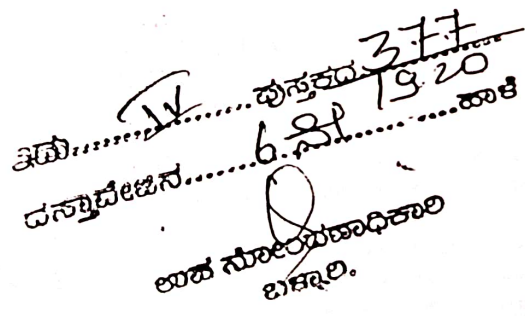 ಇದು........IV........ಪುಸ್ತಕದ 377/1920
ದಸ್ತಾವೇಜಿನ........6 ನೇ........ಹಾಳೆ
ಉಪ ನೋಂದಣಾಧಿಕಾರಿ
ಬಳ್ಳಾರಿ.